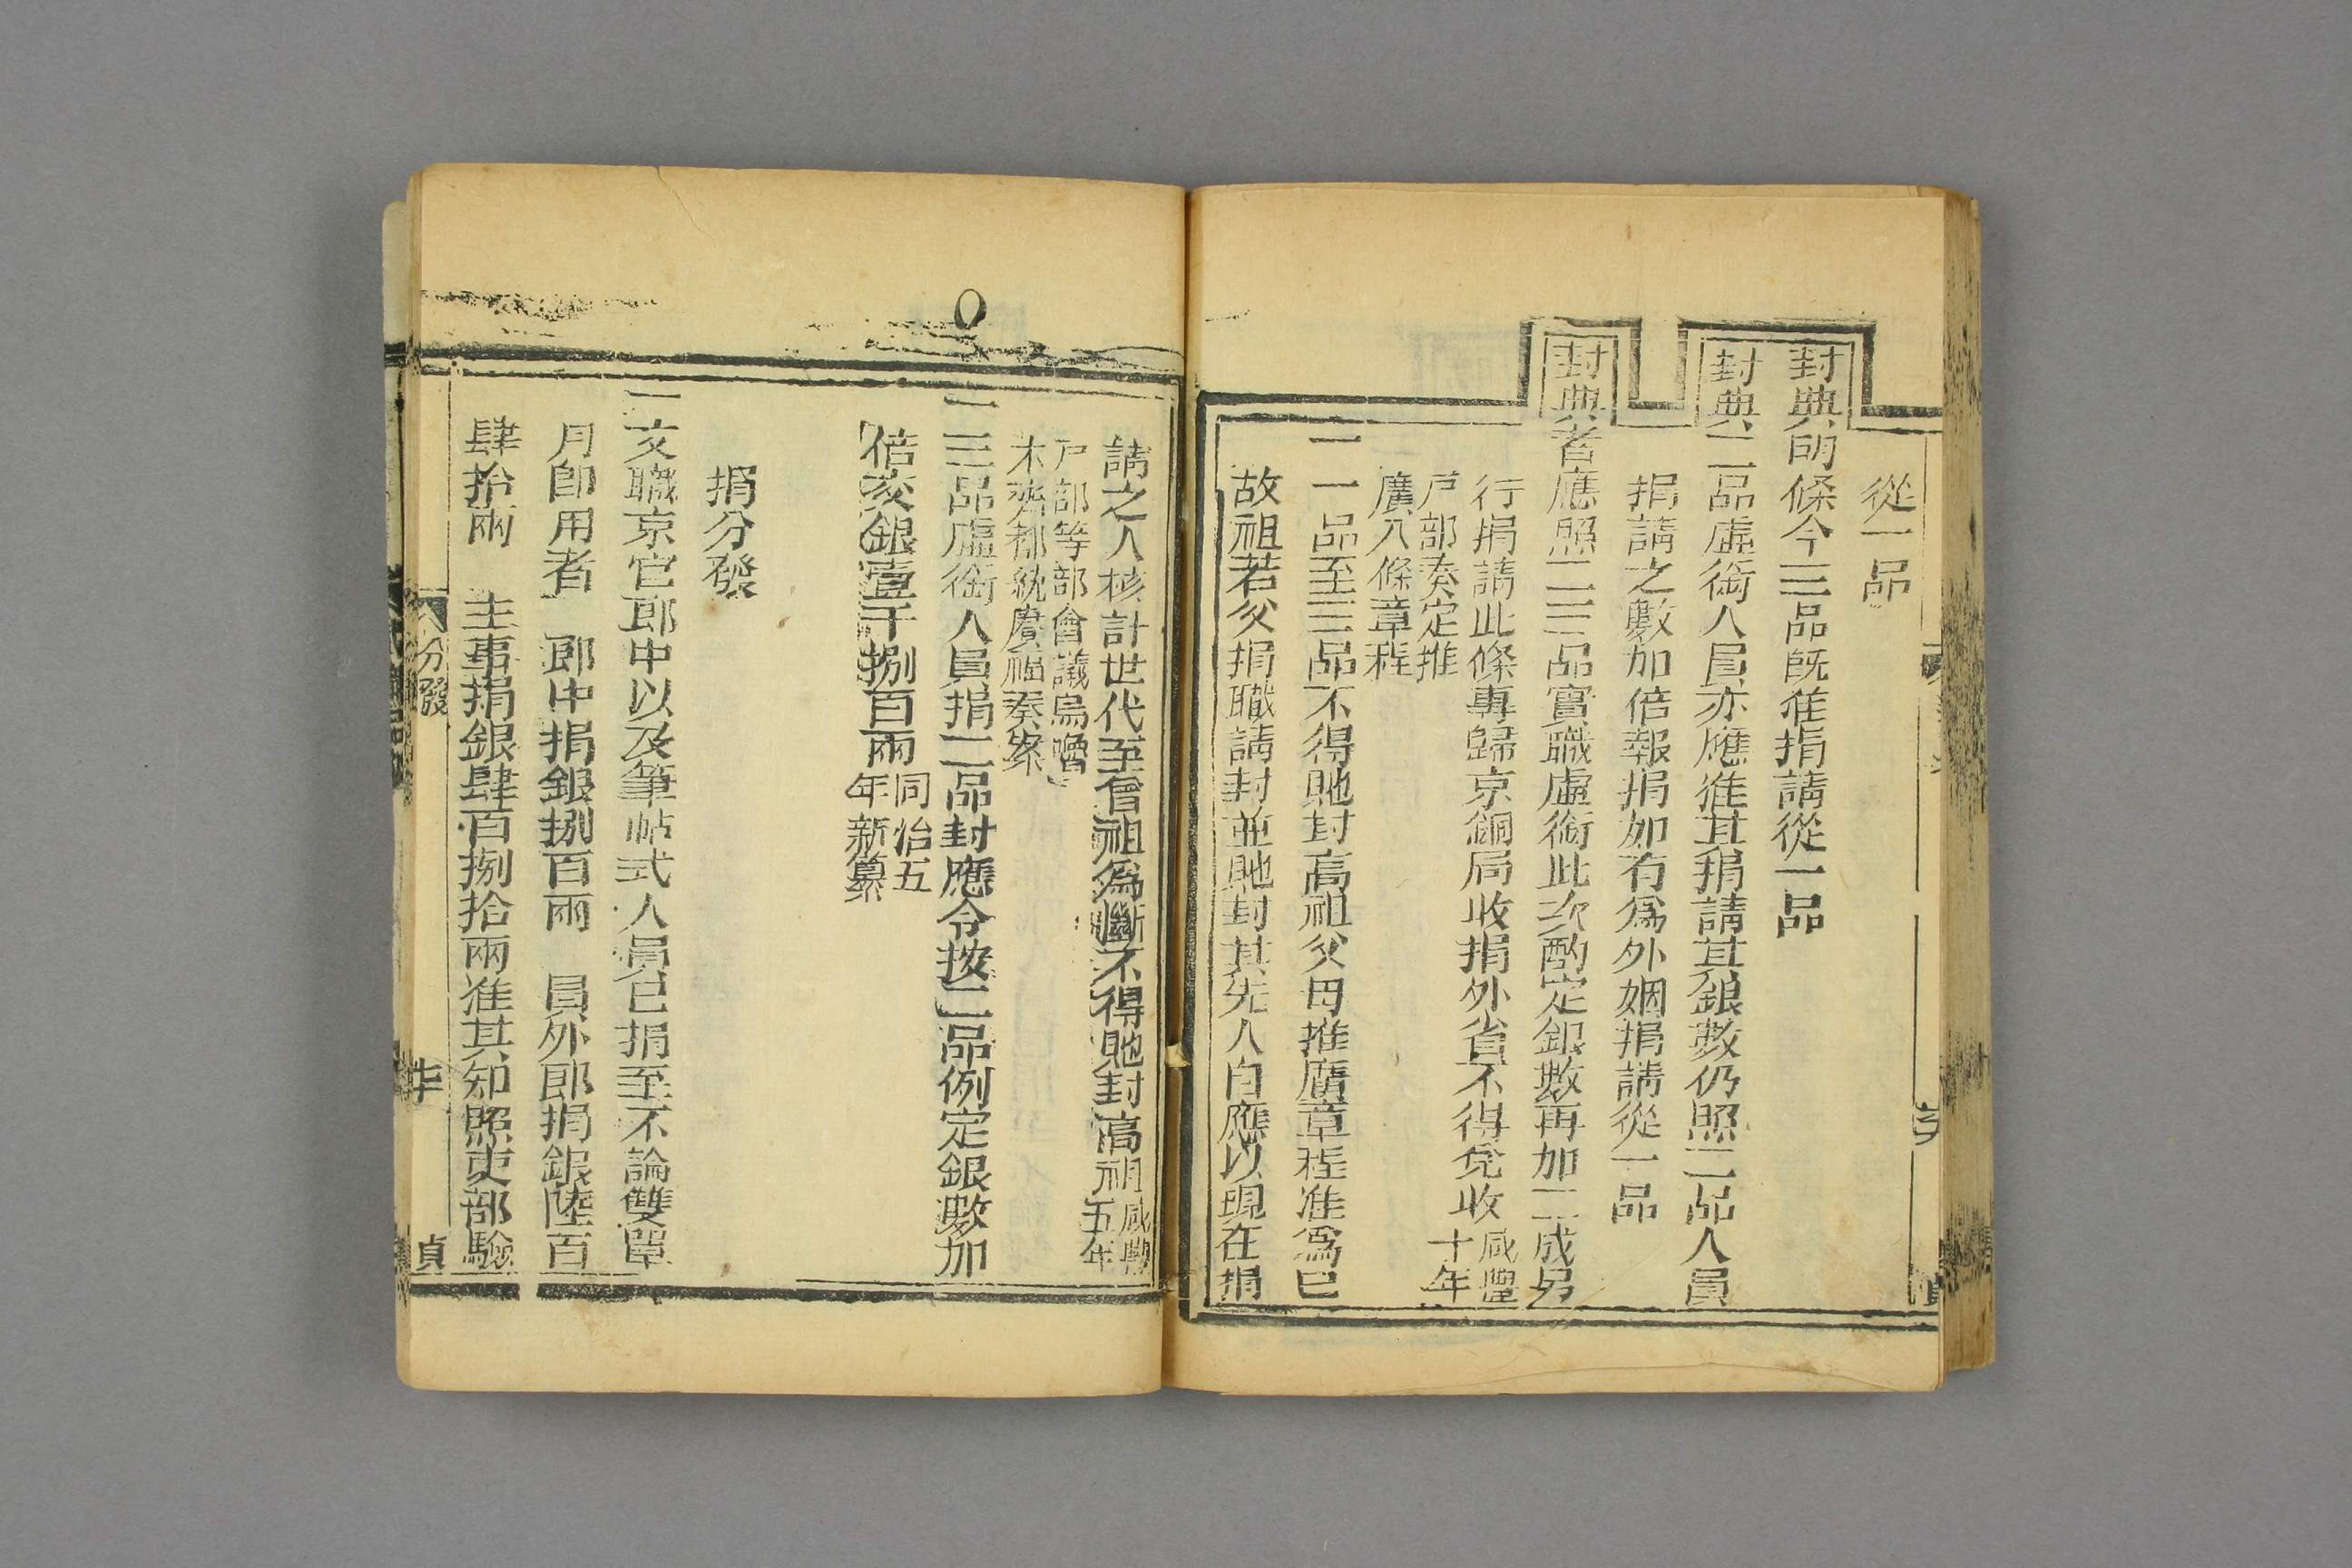 從一品
封典明條今三品旣准捐請從一品
封典二品虛銜人員亦應准其捐請其銀數仍照二品人員
捐請之數加倍報捐如有爲外姻捐請從一品
封典者應照二三品實職虛銜此次酌定銀數再加二成另
行捐請此條專歸京銅局收捐外省不得兌收咸豐十年
戶部奏定推
廣八條章程
一一品至三品不得貤封高祖父母推廣章程准爲已
故祖若父捐職請封並貤封其先人自應以現在捐
請之人核計世代至曾祖爲斷不得貤封高祖咸豐五年
戶部等部會議烏嚕
木齊都統賡福奏案
一三品虛銜人員捐二品封應令按二品例定銀數加
倍交銀壹千捌百兩同治五年新纂
捐分發
一文職京官郎中以及筆帖式人員已捐至不論雙單
月卽用者 郎中捐銀捌百兩 員外郎捐銀陸百
肆拾兩 主事捐銀肆百捌拾兩准其知照吏部驗
分發
貞